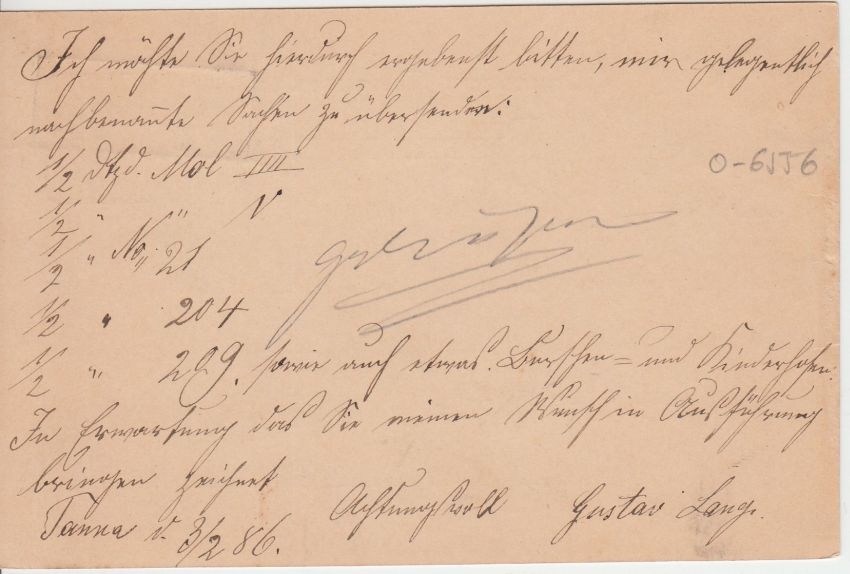 Ich möchte Sie hierdurch ergebenst bitten, mir gelegentlich
nachbenannte Sachen zu übersenden:
1/2 Dtzd. Mol IIII
1/2 " " V
1/2 " No. 21
1/2 " 204
1/2 " 209. sowie auch etwas Burschen- und Kinderhosen.
In Erwartung das Sie meinen Wunsch in Ausführung
bringen zeichnet
Achtungsvoll Gustav Lange.
Tanna d. 3/2 86.
0-6556